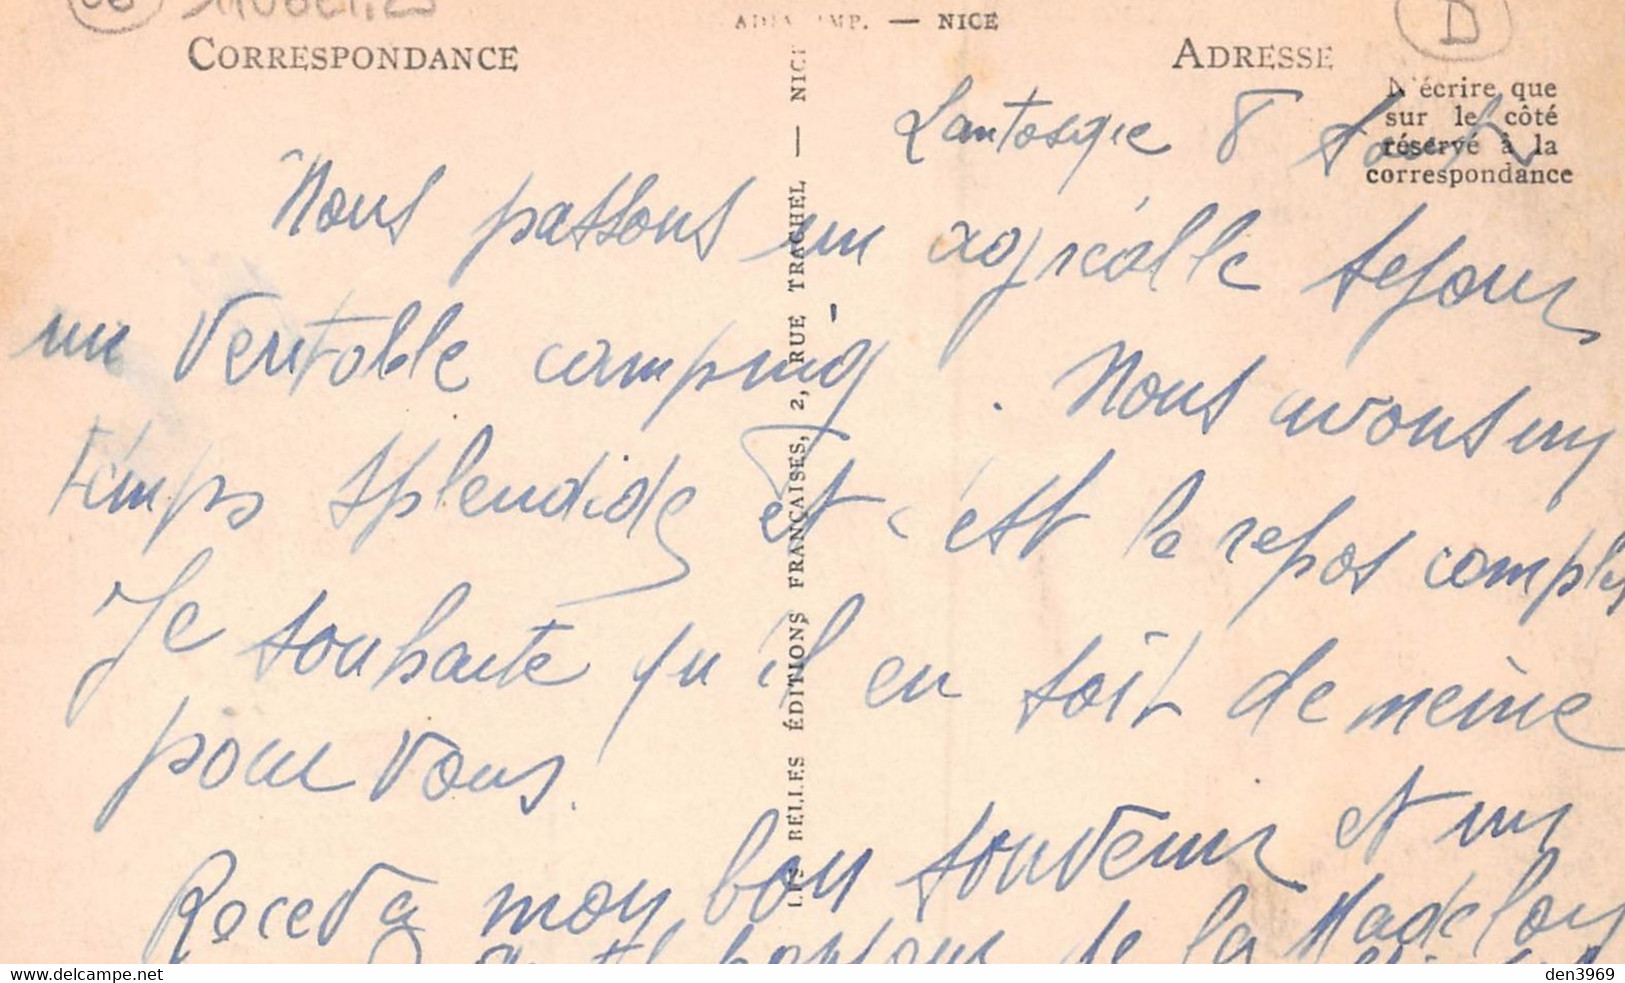 ADIA IMP. — NICE
CORRESPONDANCE
ADRESSE
N'écrire que
sur le côté
réservé à la
correspondance
LES BELLES ÉDITIONS FRANÇAISES, 2, RUE TRACHEL — NICE
D
Lantosque 8
Nous passons un agréable sejour
un veritable camping. Nous avons un
temps splendide et c'est le repos complet
Je souhaite qu'il en soit de meme
pour vous.
Recevez mon bon souvenir et un
bonjour de la Madelon
www.delcampe.net
den3969